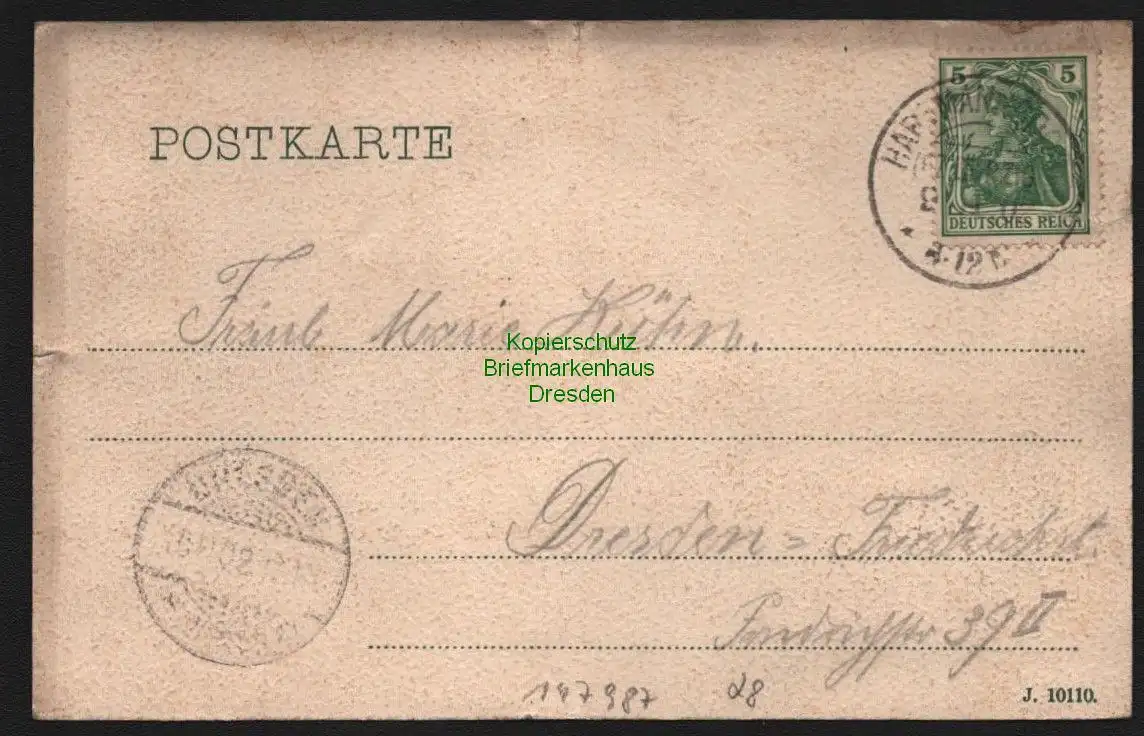 POSTKARTE
5 5
DEUTSCHES REICH
Fräul. Marie Kühn.
Kopierschutz
Briefmarkenhaus
Dresden
DRESDEN
Dresden = Friedrichst.
39 II
147987 28
J. 10110.